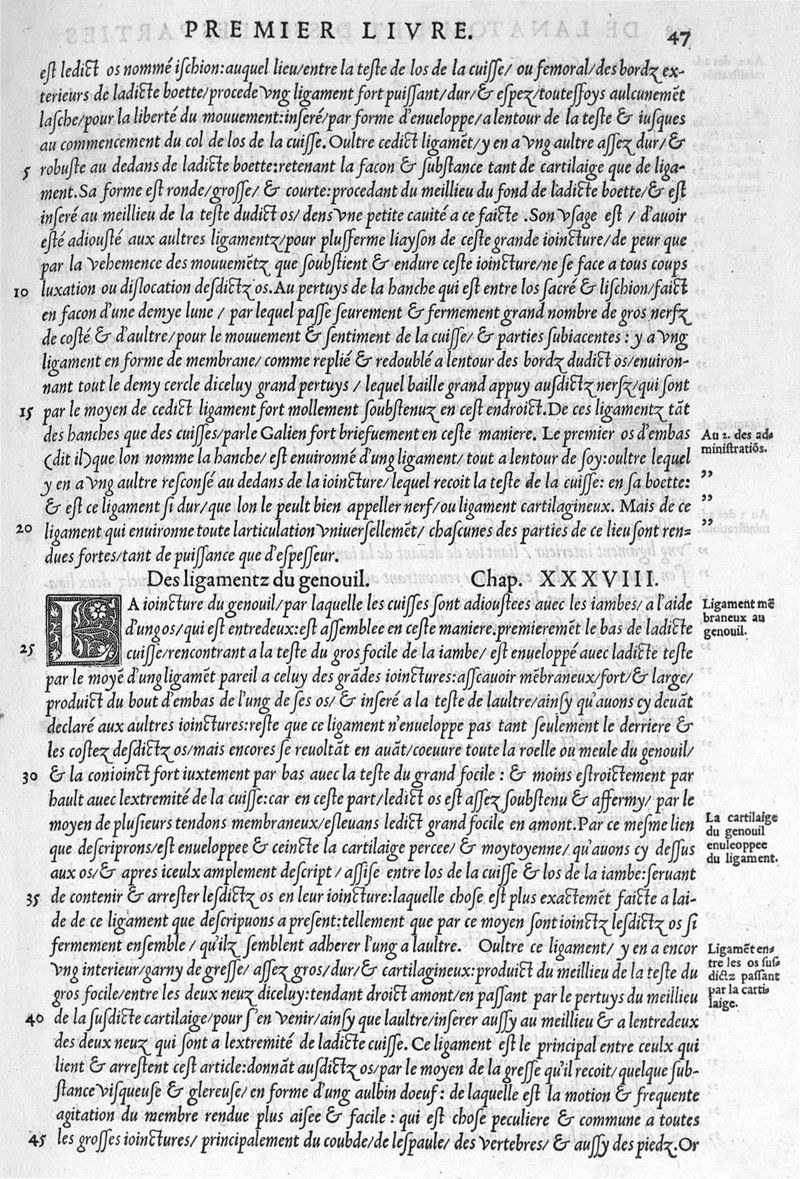 PREMIER LIVRE. 47
est ledict os nommé ischion:auquel lieu/entre la teste de los de la cuisse/ ou femoral/des bordz ex-
terieurs de ladicte boette/procede vng ligament fort puissant/dur/& espez/touteffoys aulcunemēt
lasche/pour la liberté du mouuement:inseré/par forme d'enueloppe/a lentour de la teste & iusques
au commencement du col de los de la cuisse. Oultre cedict ligamēt/y en a vng aultre assez dur/&
5 robuste au dedans de ladicte boette:retenant la facon & substance tant de cartilaige que de liga-
ment. Sa forme est ronde/grosse/ & courte:procedant du meillieu du fond de ladicte boette/& est
inseré au meillieu de la teste dudict os/ dens vne petite cauité a ce faicte .Son vsage est / d'auoir
esté adiousté aux aultres ligamentz/pour plusferme liayson de ceste grande ioincture/de peur que
par la vehemence des mouuemētz que soubstient & endure ceste ioincture/ne se face a tous coups
10 luxation ou dislocation desdictz os. Au pertuys de la hanche qui est entre los sacré & lischion/faict
en facon d'une demye lune / par lequel passe seurement & fermement grand nombre de gros nerfz
de costé & d'aultre/pour le mouuement & sentiment de la cuisse/ & parties subiacentes : y a vng
ligament en forme de membrane/ comme replié & redoublé a lentour des bordz dudict os/enuiron-
nant tout le demy cercle diceluy grand pertuys / lequel baille grand appuy ausdictz nerfz/qui sont
15 par le moyen de cedict ligament fort mollement soubstenuz en cest endroict. De ces ligamentz tāt
des hanches que des cuisses/parle Galien fort briefuement en ceste maniere. Le premier os d'embas
(dit il)que lon nomme la hanche/ est enuironé d'ung ligament/ tout a lentour de soy:oultre lequel
y en a vng aultre resconsé au dedans de la ioincture/lequel recoit la teste de la cuisse: en sa boette:
& est ce ligament si dur/que lon le peult bien appeller nerf/ou ligament cartilagineux. Mais de ce
20 ligament qui enuironne toute larticulation vniuersellemēt/ chascunes des parties de ce lieu sont ren-
dues fortes/tant de puissance que d'espesseur.
Au 2. des ad-
ministratiōs.
”
”
”
Des ligamentz du genouil. Chap. XXXVIII.
LA ioincture du genouil/par laquelle les cuisses sont adioustees auec les iambes/ a l'aide
d'ung os/qui est entredeux:est assemblee en ceste maniere.premieremēt le bas de ladicte
25 cuisse/rencontrant a la teste du gros focile de la iambe/ est enueloppé auec ladicte teste
par le moyē d'ung ligamēt pareil a celuy des grādes ioinctures:asscauoir mēbraneux/fort/& large/
produict du bout d'embas de l'ung de ses os/ & inseré a la teste de laultre/ainsy qu'auons cy deuāt
declaré aux aultres ioinctures:reste que ce ligament n'enueloppe pas tant seulement le derriere &
les costez desdictz os/mais encores se reuoltāt en auāt/coeuure toute la roelle ou meule du genouil/
30 & la conioinct fort iuxtement par bas auec la teste du grand focile : & moins estroictement par
hault auec lextremité de la cuisse:car en ceste part/ledict os est assez soubstenu & affermy/ par le
moyen de plusieurs tendons membraneux/esleuans ledict grand focile en amont. Par ce mesme lien
que descriprons/est enueloppee & ceincte la cartilaige percee/ & moytoyenne/ qu'auons cy dessus
aux os/& apres iceulx amplement descript / assise entre los de la cuisse & los de la iambe:seruant
35 de contenir & arrester lesdictz os en leur ioincture:laquelle chose est plus exactemēt faicte a lai-
de de ce ligament que descripuons a present:tellement que par ce moyen sont ioinctz lesdictz os si
fermement ensemble / qu'ilz semblent adherer l'ung a laultre. Oultre ce ligament/ y en a encor
vng interieur/garny de gresse/ assez gros/dur/& cartilagineux:produict du meillieu de la teste du
gros focile/entre les deux neuz diceluy:tendant droict amont/en passant par le pertuys du meillieu
40 de la susdicte cartilaige/pour s'en venir/ainsy que laultre/inserer aussy au meillieu & a lentredeux
des deux neuz qui sont a lextremité de ladicte cuisse. Ce ligament est le principal entre ceulx qui
lient & arrestent cest article:donnāt ausdictz os/par le moyen de la gresse qu'il recoit/quelque sub-
stance visqueuse & glereuse/ en forme d'ung aulbin doeuf : de laquelle est la motion & frequente
agitation du membre rendue plus aisee & facile : qui est chose peculiere & commune a toutes
45 les grosses ioinctures/ principalement du coubde/de lespaule/ des vertebres/ & aussy des piedz. Or
Ligament mē
braneux au
genouil.
La cartilaige
du genouil
enuleoppee
du ligament.
Ligamēt en-
tre les os sus
dictz passant
par la carti
laige.